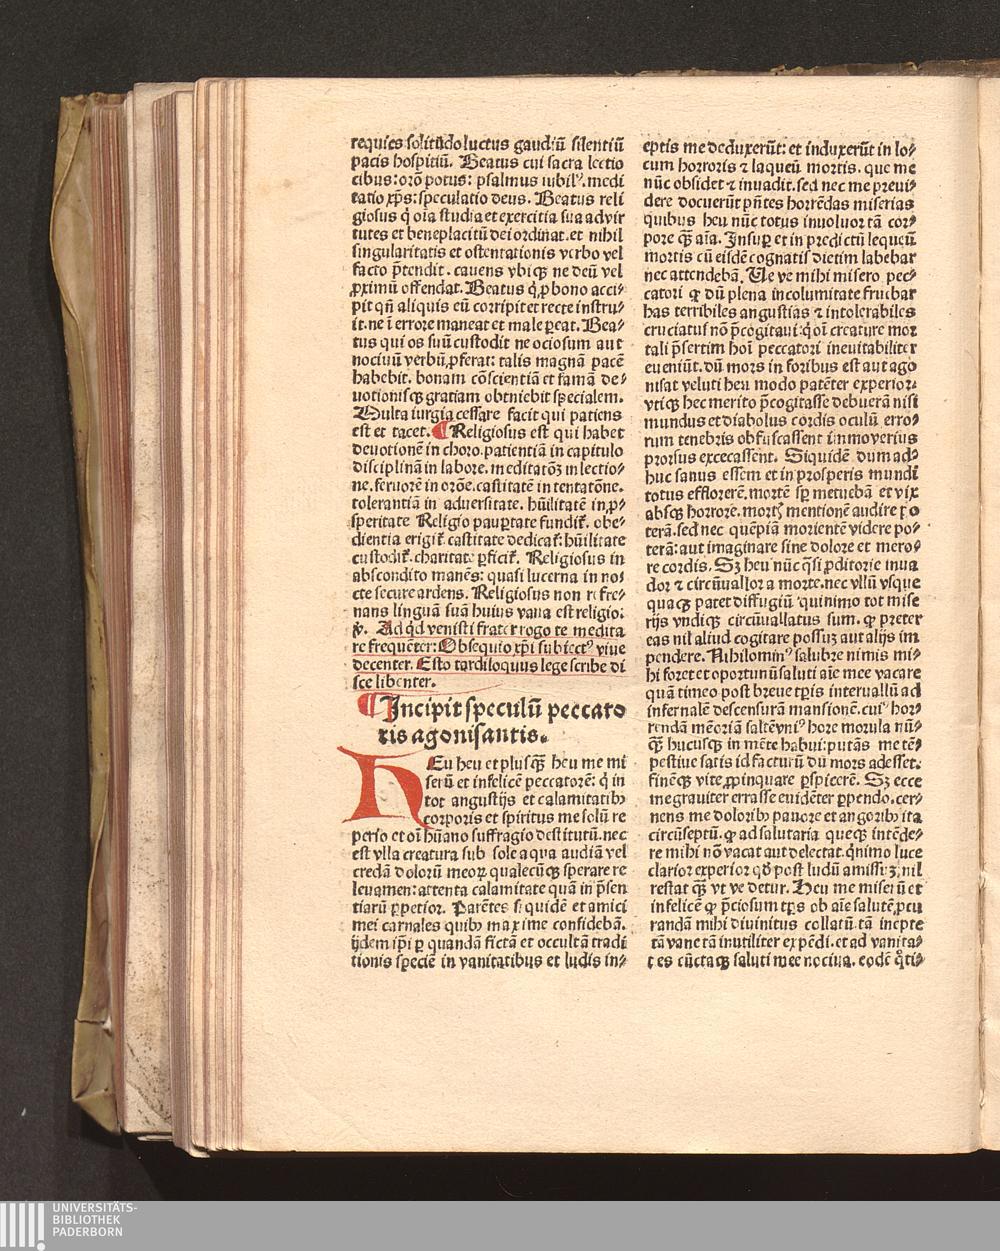 requies solitudo luctus gaudiū silentiū
pacis hospitiū. Beatus cui sacra lectio
cibus: orō potus: psalmus iubilꝰ. medi
tatio xp̄s: speculatio deus. Beatus reli
giosus q̇ oīa studia et exercitia sua ad vir
tutes et beneplacitū dei ordinat. et nihil
singularitatis et ostentationis verbo vel
facto p̄tendit. cauens vbiqꝫ ne deū vel
ꝓximū offendat. Beatus q̇ ꝓ bono acci⸗
pit qn̄ aliquis eū corripit et recte instru⸗
it. ne ī errore maneat et male ꝑeat. Bea⸗
tus qui os suū custodit ne ociosum aut
nociuū verbū ꝓferat: talis magnā pacē
habebit. bonam cōscientiā et famā de⸗
uotionisqꝫ gratiam obtniebit specialem.
Multa iurgia cessare facit qui patiens
est et tacet. ¶ Religiosus est qui habet
deuotionē in choro. patientiā in capitulo
disciplinā in labore. meditatōꝫ in lectio⸗
ne. feruorē in orōe. castitatē in tentatōne.
tolerantiā in aduersitate. hūilitatē in ꝓ⸗
speritate Religio pauꝑtate fundit᷑. obe⸗
dientia erigit᷑ castitate dedicat᷑: hūilitate
custodit᷑. charitate ꝑficit᷑. Religiosus in
abscondito manēs: quasi lucerna in no⸗
cte secure ardens. Religiosus non refre⸗
nans linguā suā huius vana est religio:
℣. Ad qd̄ venisti frater rogo te medita
re frequēter: Obsequio xp̄i subiectꝰ viue
decenter. Esto tardiloquus lege scribe di
sce libenter.
¶ Incipit speculū peccato
ris agonisantis.
HEu heu et plusqꝫ̄ heu me mi
serū et infelicē peccatorē: q̇ in
tot angustijs et calamitatibꝫ
corporis et spiritus me solū re
perio et oī hūano suffragio destitutū. nec
est vlla creatura sub sole a qua audiā vel
credā dolorū meoꝝ qualecūqꝫ sperare re
leuamen: attenta calamitate quā in p̄sen
tiarū ꝑpetior. Parētes siquidē et amici
mei carnales quibꝫ maxime confidebā.
ijdem ip̄i ꝑ quandā fictā et occultā tradi
tionis speciē in vanitatibus et ludis in⸗
eptis me deduxerūt: et induxerūt in lo⸗
cum horroris ⁊ laqueū mortis. que me
nūc obsidet ⁊ inuadit. sed nec me preui⸗
dere docuerūt pn̄tes horrēdas miserias
quibus heu nūc totus inuoluor tā cor⸗
pore qꝫ̄ aīa. Insuꝑ et in predictū lequeū
mortis cū eisdē cognatis dietim labebar
nec attendebā. Ue ve mihi misero pec⸗
catori ꝙ dū plena incolumitate fruebar
has terribiles angustias ⁊ intolerabiles
cruciatus nō p̄cogitaui: q̇ oī creature mor
tali p̄sertim hoī peccatori ineuitabiliter
eueniūt. dū mors in foribus est aut ago
nisat veluti heu modo patēter experior.
vtiqꝫ hec merito p̄cogitasse debuerā nisi
mundus et diabolus cordis oculū erro⸗
rum tenebris obfuscassent immoverius
prorsus excecassent. Siquidē dum ad⸗
huc sanus essem et in prosperis mundi
totus efflorerē. mortē sꝑ metuebā et vix
absqꝫ horrore. mortꝭ mentionē audire po
terā. sed nec quēpiā morientē videre po⸗
terā: aut imaginare sine dolore et mero⸗
re cordis. Sꝫ heu nūc q̄si ꝓditorie inua
dor ⁊ circūuallor a morte. nec vllū vsque
quaqꝫ patet diffugiū quinimo tot mise
rijs vndiqꝫ circūuallatus sum. ꝙ preter
eas nil aliud cogitare possuꝫ aut alijs im
pendere. Nihilominꝰ salubre nimis mi⸗
hi foret et oportunū saluti aīe mee vacare
quā timeo post breue tp̄is interuallū ad
infernalē descensurā mansionē. cuiꝰ hor⸗
rendā mēoriā saltē vniꝰ hore morula nū⸗
qꝫ̄ hucusqꝫ in mēte habui: putās me tē⸗
pestiue satis id facturū dū mors adesset.
finēqꝫ vite ꝓpinquare ꝑspicerē. Sꝫ ecce
me grauiter errasse euidēter ꝑpendo. cer⸗
nens me doloribꝫ pauore et angoribꝫ ita
circūseptū. ꝙ ad salutaria queqꝫ intēde⸗
re mihi nō vacat aut delectat. q̇nimo luce
clarior experior qd̄ post ludū amissuꝫ, nil
restat qꝫ̄ vt ve detur. Heu me miserū et
infelicē ꝙ p̄ciosum tp̄s ob aīe salutē ꝓcu
randā mihi diuinitus collatū. tā inepte
tā vane tā inutiliter expēdi. et ad vanita⸗
tes cūctaqꝫ saluti mee nociua. eodē q̊ti⸗
UNIVERSITÄTS-
BIBLIOTHEK
PADERBORN